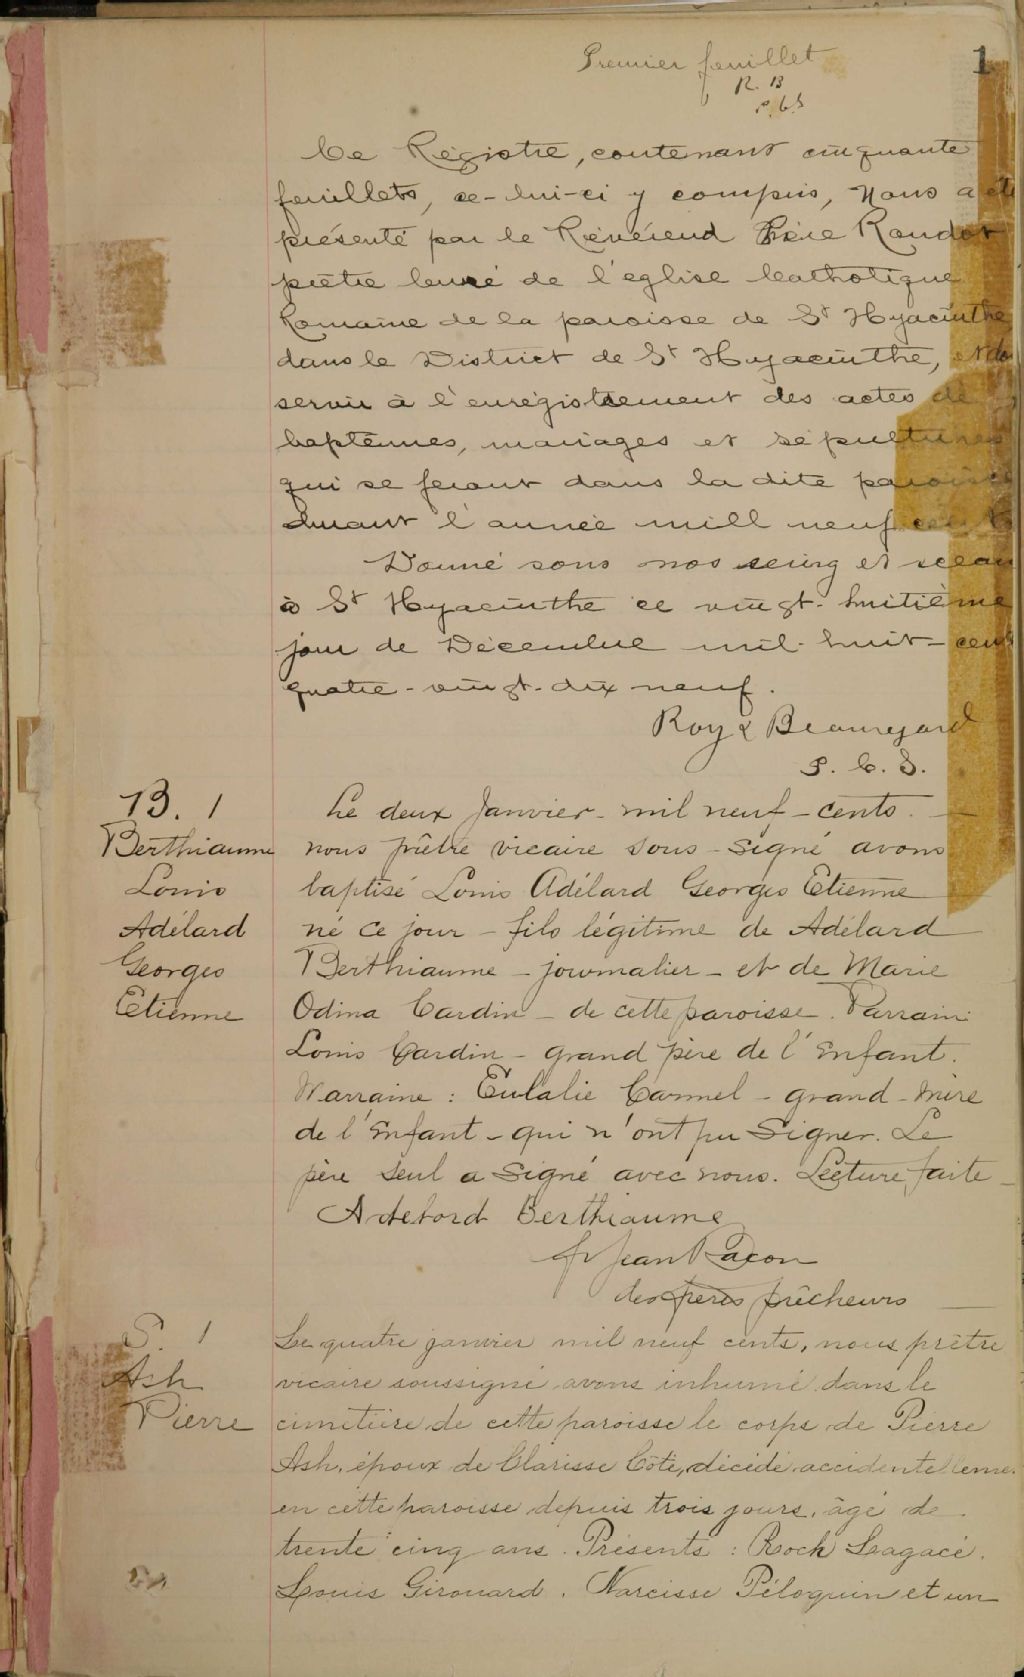 Premier feuillet
1
R. B
P.C.S
Ce Régistre, contenant cinquante
feuillets, ce-lui-ci y compris, Nous a été
présenté par le Révérend Père Rondot
prêtre Curé de l'église Catholique
Romaine de la paroisse de St Hyacinthe
dans le District de St Hyacinthe, et doit
servir à l'enrégistrement des actes de
baptêmes, mariages et sépultures
qui se feront dans la dite paroisse
durant l'année mill neuf cents
Donné sous nos seing et sceau
à St Hyacinthe ce vingt-huitième
jour de Décembre mil-huit-cent
quatre-vingt-dix neuf.
Roy & Beauregard
P. C. S.
B. 1
Berthiaume
Louis
Adélard
Georges
Etienne
Le deux Janvier - mil neuf-cents. —
nous prêtre vicaire sous-signé avons
baptisé Louis Adélard Georges Etienne
né ce jour - fils légitime de Adélard
Berthiaume - journalier - et de Marie
Odina Cardin - de cette paroisse. Parrain:
Louis Cardin - grand père de l'Enfant.
Marraine: Eulalie Carmel - grand-mère
de l'Enfant - qui n'ont pu Signer. Le
père Seul a Signé avec nous. Lecture faite -
Adelord Berthiaume
fr Jean Bacon
des frères prêcheurs —
S. 1
Ash
Pierre
Le quatre janvier mil neuf cents, nous prêtre
vicaire soussigné avons inhumé dans le
cimetière de cette paroisse le corps de Pierre
Ash, époux de Clarisse Côté, décédé accidentelleme
en cette paroisse depuis trois jours, âgé de
trente cinq ans. Présents: Roch Lagacé.
Louis Girouard. Narcisse Péloquin et un